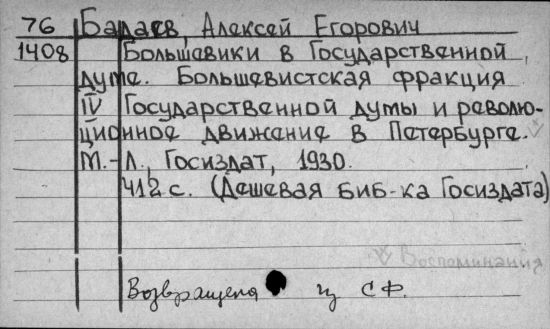 76 Бадаев, Алексей Егорович
1408 Большевики в Государственной
думе. Большевистская фракция
IV Государственной думы и револю-
ционное движение в Петербурге.
М.-Л., Госиздат, 1930.
412 с. (Дешевая биб-ка Госиздата)
Воспоминания
Возвращена из СФ.